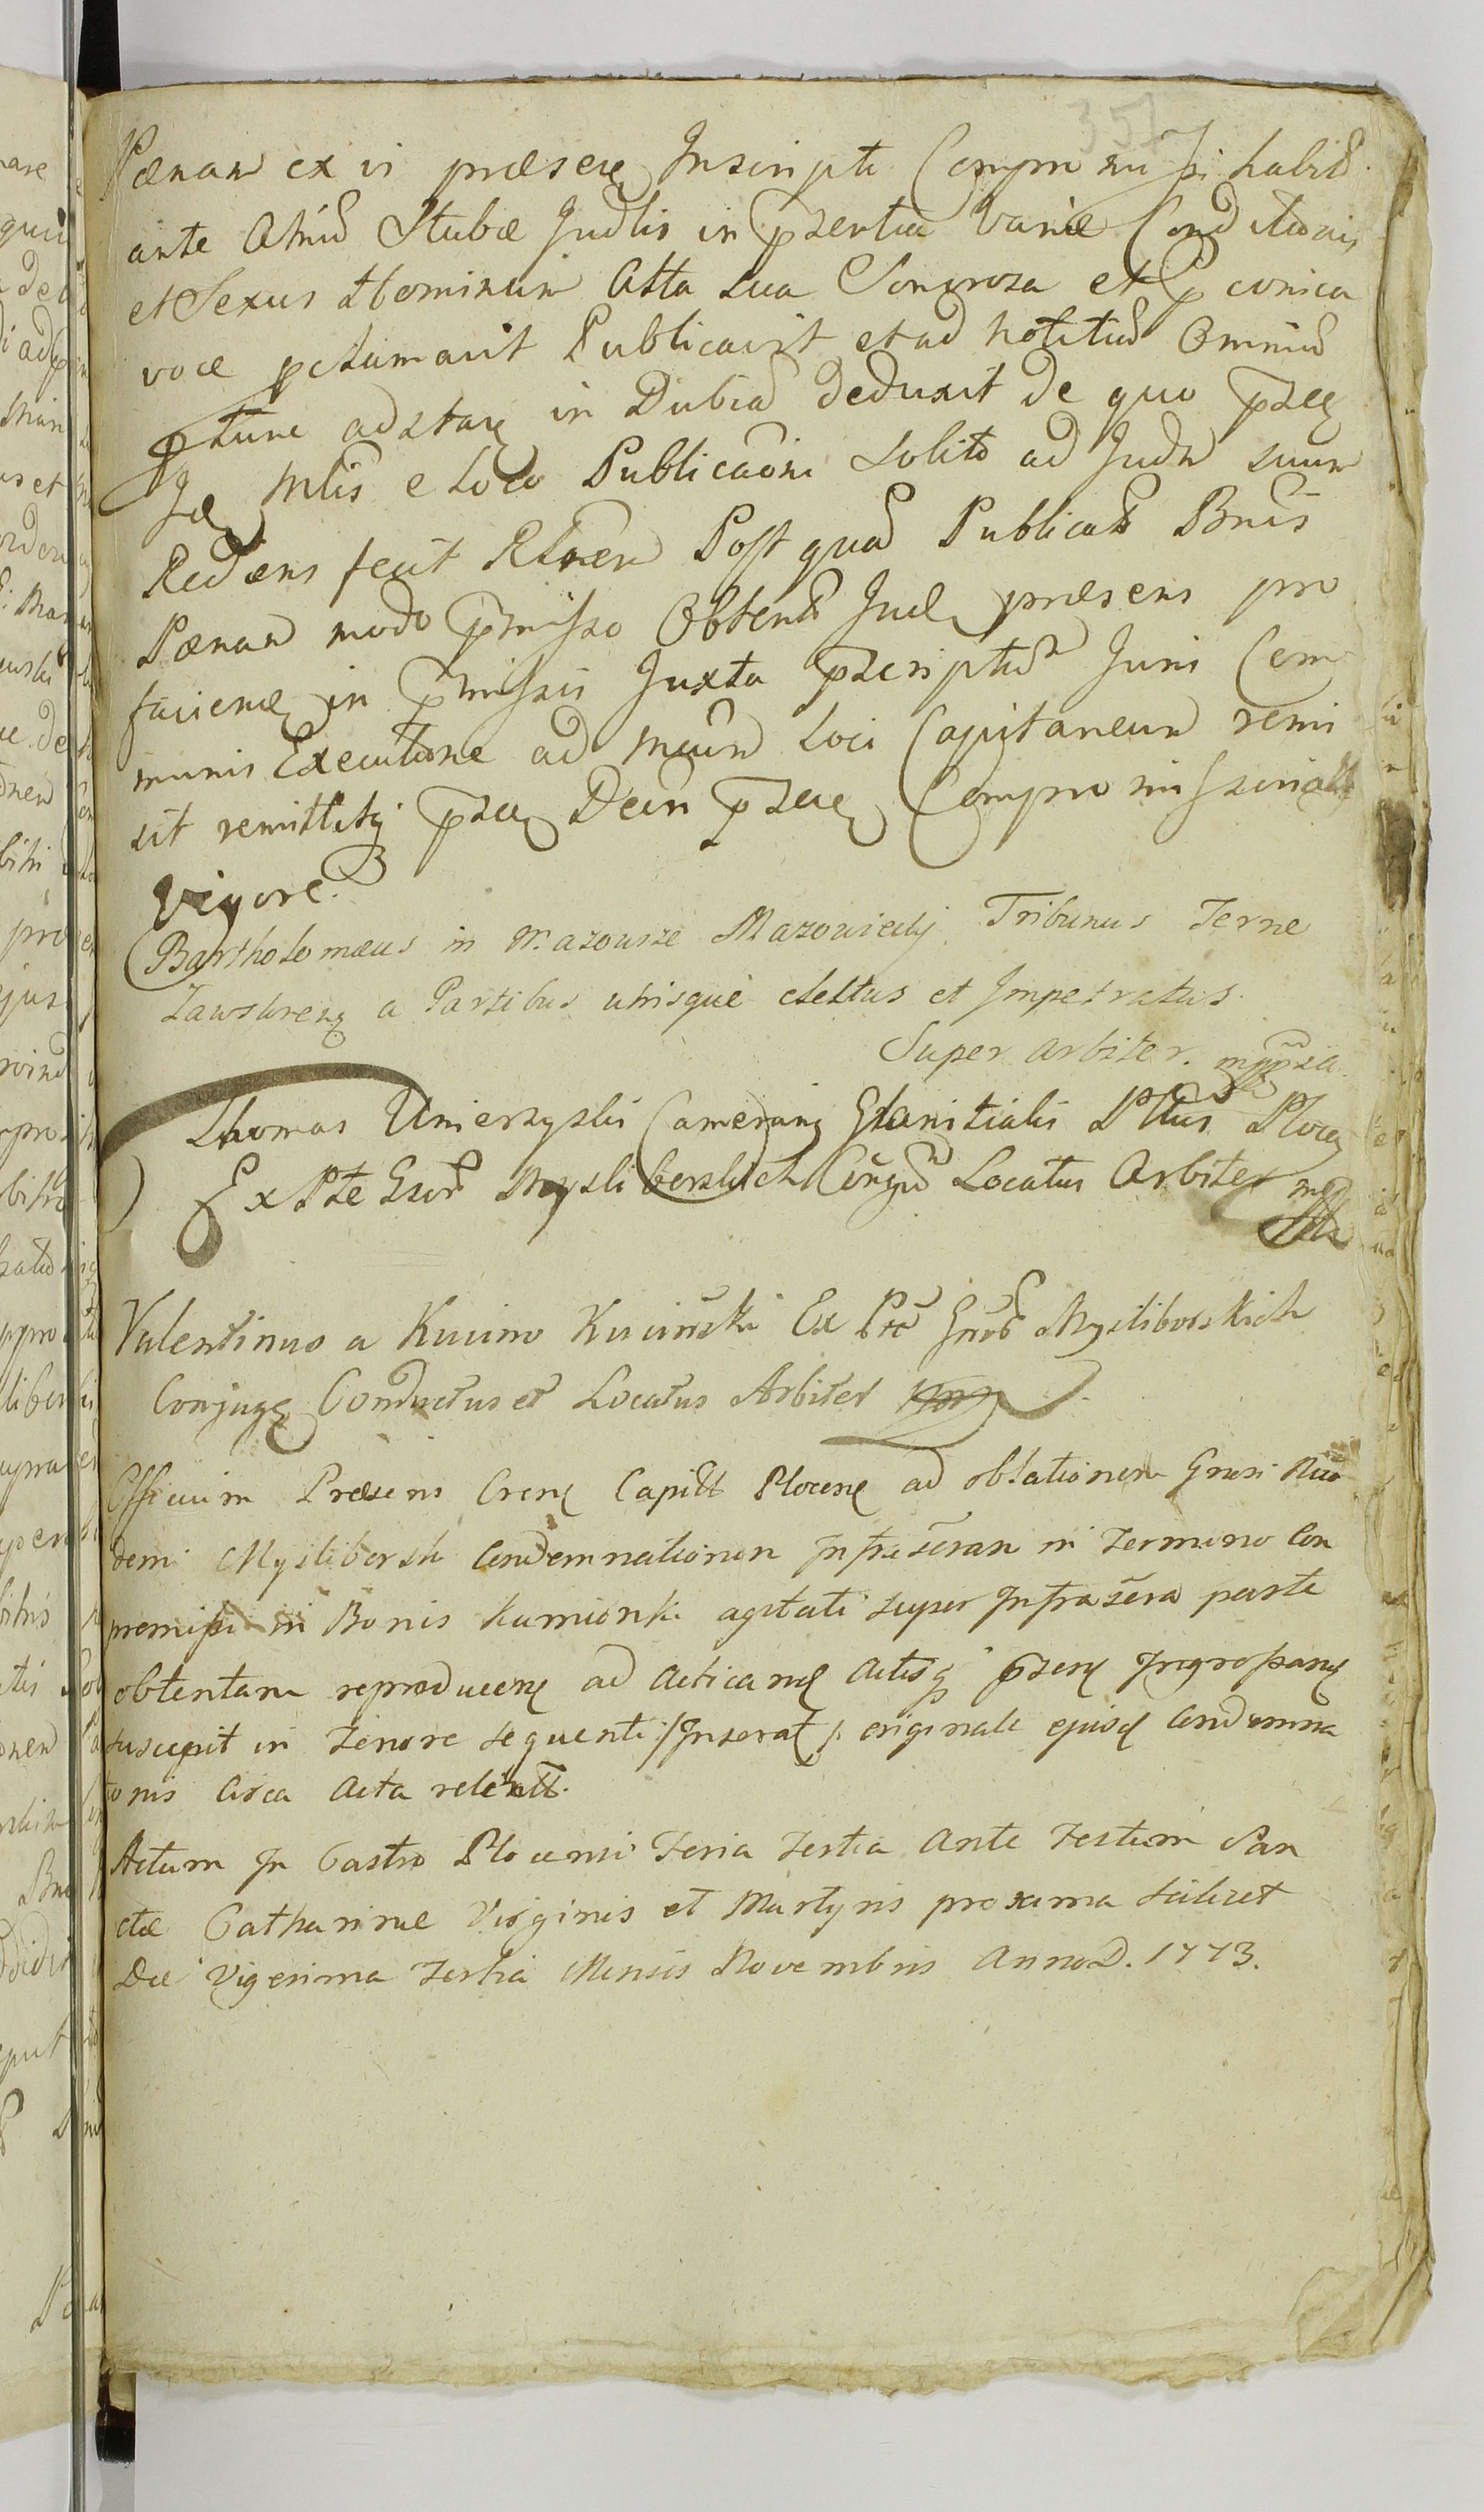 351
Pœnam ex vi præsen Inscripti Compromissi habit
ante Atriũ Stubæ Judlis in pzentia Variæ Conditionis
et Sexus Hominum Alta sua Sonoroza et conica
voce pclamavit Publicavit et ad notitiã Omniũ
tunc adstan in Dubiã deduxit de quo pzen
Mlis e Loco Publicaõni solito ad Judm suum
Rediens fecit Rlõem Post quã Publicatã Bnis
Pœnam modo pmisso Obtentã Jud præsens pro
faciend in pmissis Juxta pzcriptũ Juris Com
munis Executione ad mcum Loci Capitaneum remi
sit remittitq pzen Decr pzen Compromissorialis
Vigore.
Bartholomæus in Mazowsze Mazowiecki Tribunus Terræ
Zawskren a Partibus utrisque electus et Impetratus.
Super arbiter. mppria
Thomas Umierzyski Camerariꝰ Granitialis Pttus Plocen
Ex Pte Gsorũ Mysliborskich Conjgũ Locatus Arbiter mp
Valentinus a Kucino Kuciński Ex Pte Gnrõs Mysliborskich
Conjugũ Conductus et Locatus Arbiter
Officium Præsens Crens Capitt Plocens ad oblationem Gnrosi Nico
demi Mysliborski Condemnationem Infrascran in Termino Com
premissi in Bonis Kamionki agitati super Infrascra parte
obtentam reproducens ad Acticand Actisq pzens Ingrossand
suscepit in Tenore sequenti /:Inserat:/ originale ejusd Condemna
tionis Circa Acta relictt.
Actum In Castro Plocensi Feria Tertia Ante Festum San
ctæ Catharinæ Virginis et Martyris proxima scilicet
Die Vigesima Tertia Mensis Novembris Anno D. 1773.